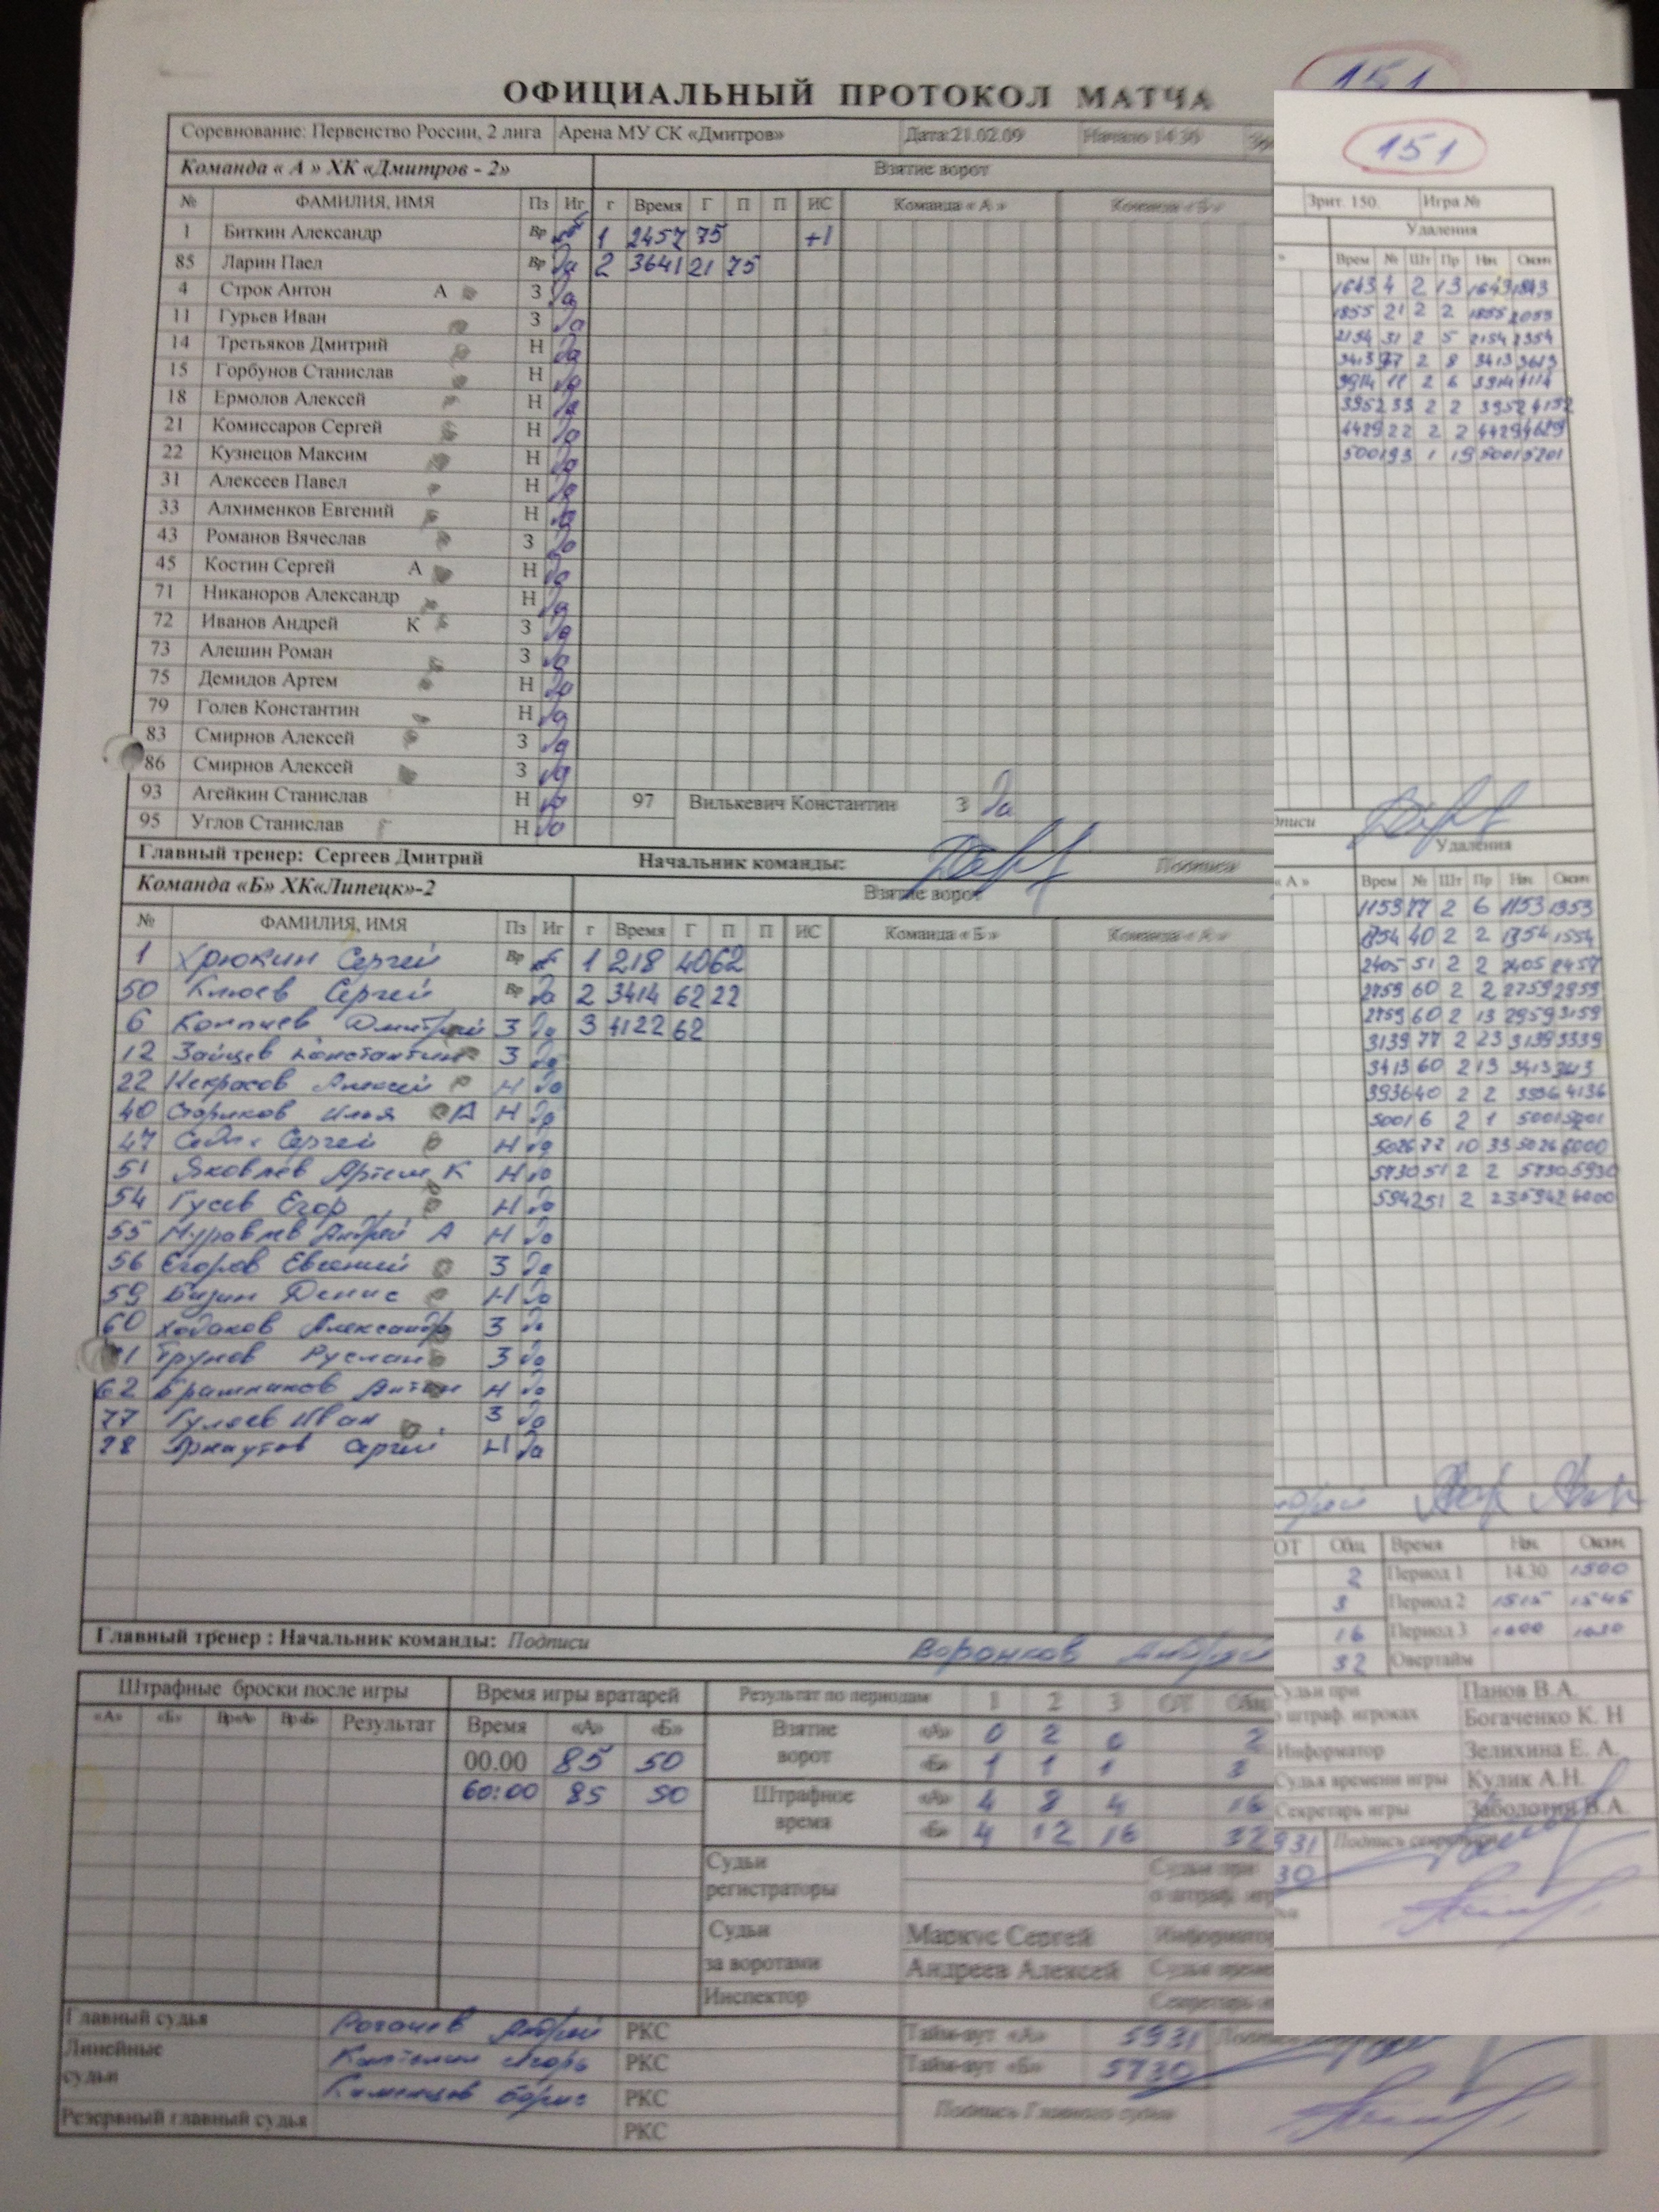 151
ОФИЦИАЛЬНЫЙ ПРОТОКОЛ МАТЧА
151
Соревнование: Первенство России, 2 лига Арена МУ СК «Дмитров» Дата:21.02.09 Начало 14:30
Зрит. 150. Игра №
Команда « А » ХК «Дмитров - 2» Взятие ворот Удаления
№ ФАМИЛИЯ, ИМЯ Пз Иг г Время Г П П ИС Команда « А » Команда « Б » Врем № Шт Пр Нач Окон
1 Биткин Александр Вр 1 2457 75 +1
85 Ларин Паел Вр Да 2 3641 21 75
4 Строк Антон А З Да
11 Гурьев Иван З Да
14 Третьяков Дмитрий Н Да
15 Горбунов Станислав Н Да
18 Ермолов Алексей Н Да
21 Комиссаров Сергей Н Да
22 Кузнецов Максим Н Да
31 Алексеев Павел Н Да
33 Алхименков Евгений Н Да
43 Романов Вячеслав З Да
45 Костин Сергей А Н Да
71 Никаноров Александр Н Да
72 Иванов Андрей К З Да
73 Алешин Роман З Да
75 Демидов Артем Н Да
79 Голев Константин Н Да
83 Смирнов Алексей З Да
86 Смирнов Алексей З Да
93 Агейкин Станислав Н Да 97 Вилькевич Константин З Да
95 Углов Станислав Н Да
1643 4 2 13 1643 1843
1855 21 2 2 1855 2055
2154 31 2 5 2154 2354
3413 97 2 8 3413 3613
3914 11 2 6 3914 4114
3952 33 2 2 3952 4152
4429 22 2 2 4429 4629
5001 93 1 19 5001 5201
Главный тренер: Сергеев Дмитрий Начальник команды: Подписи
Команда «Б» ХК«Липецк»-2 Взятие ворот Удаления
№ ФАМИЛИЯ, ИМЯ Пз Иг г Время Г П П ИС Команда « Б » Команда « А » Врем № Шт Пр Нач Окон
1 Хрюкин Сергей Вр 1 218 40 62
50 Клюев Сергей Вр Да 2 3414 62 22
6 Дмитрий З Да 3 4122 62
12 Зайцев Константин З Да
22 Некрасов Алексей Н Да
40 Стариков Илья А Н Да
47 Сергей Н Да
51 Яковлев Артем К Н Да
54 Гусев Егор Н Да
55 Муравлев Андрей А Н Да
56 Егоров Евгений З Да
59 Бизин Денис Н Да
60 Ходаков Александр З Да
61 Трунов Руслан З Да
62 Брашников Антон Н Да
77 Гулаев Иван З Да
78 Арнаутов Сергей Н Да
1153 77 2 6 1153 1353
1354 40 2 2 1354 1554
2405 51 2 2 2405 2457
2759 60 2 2 2759 2959
2759 60 2 13 2959 3159
3139 77 2 23 3139 3339
3413 60 2 13 3413 3613
3936 40 2 2 3936 4136
5001 6 2 1 5001 5201
5026 77 10 33 5026 6000
5730 51 2 2 5730 5930
5942 51 2 23 5942 6000
Главный тренер : Начальник команды: Подписи Воронков Андрей
ОТ Общ Время Нач Окон
2 Период 1 14.30 1500
3 Период 2 1515 1545
16 Период 3 1600 1630
32 Овертайм
Штрафные броски после игры Время игры вратарей Результат по периодам 1 2 3 ОТ Общ
«А» «Б» Вр«А» Вр«Б» Результат Время «А» «Б» Взятие ворот «А» 0 2 0 2
00.00 85 50 «Б» 1 1 1 3
60:00 85 50 Штрафное время «А» 4 8 4 16
«Б» 4 12 16 32
Судьи при о штраф. игроках Панов В.А.
Богаченко К. Н
Информатор Зелихина Е. А.
Судья времени игры Кулик А.Н.
Секретарь игры Заболотин В.А.
931 Подпись секретаря
30
Судьи регистраторы Судьи при о штраф. игр
Судьи за воротами Маркус Сергей Информатор
Андреев Алексей Судья време
Инспектор Секретарь и
Главный судья Рогачев Андрей РКС Тайм-аут «А» 5931
Линейные судьи Игорь РКС Тайм-аут «Б» 5730
Каменцов Борис РКС Подпись Главного судьи
Резервный главный судья РКС